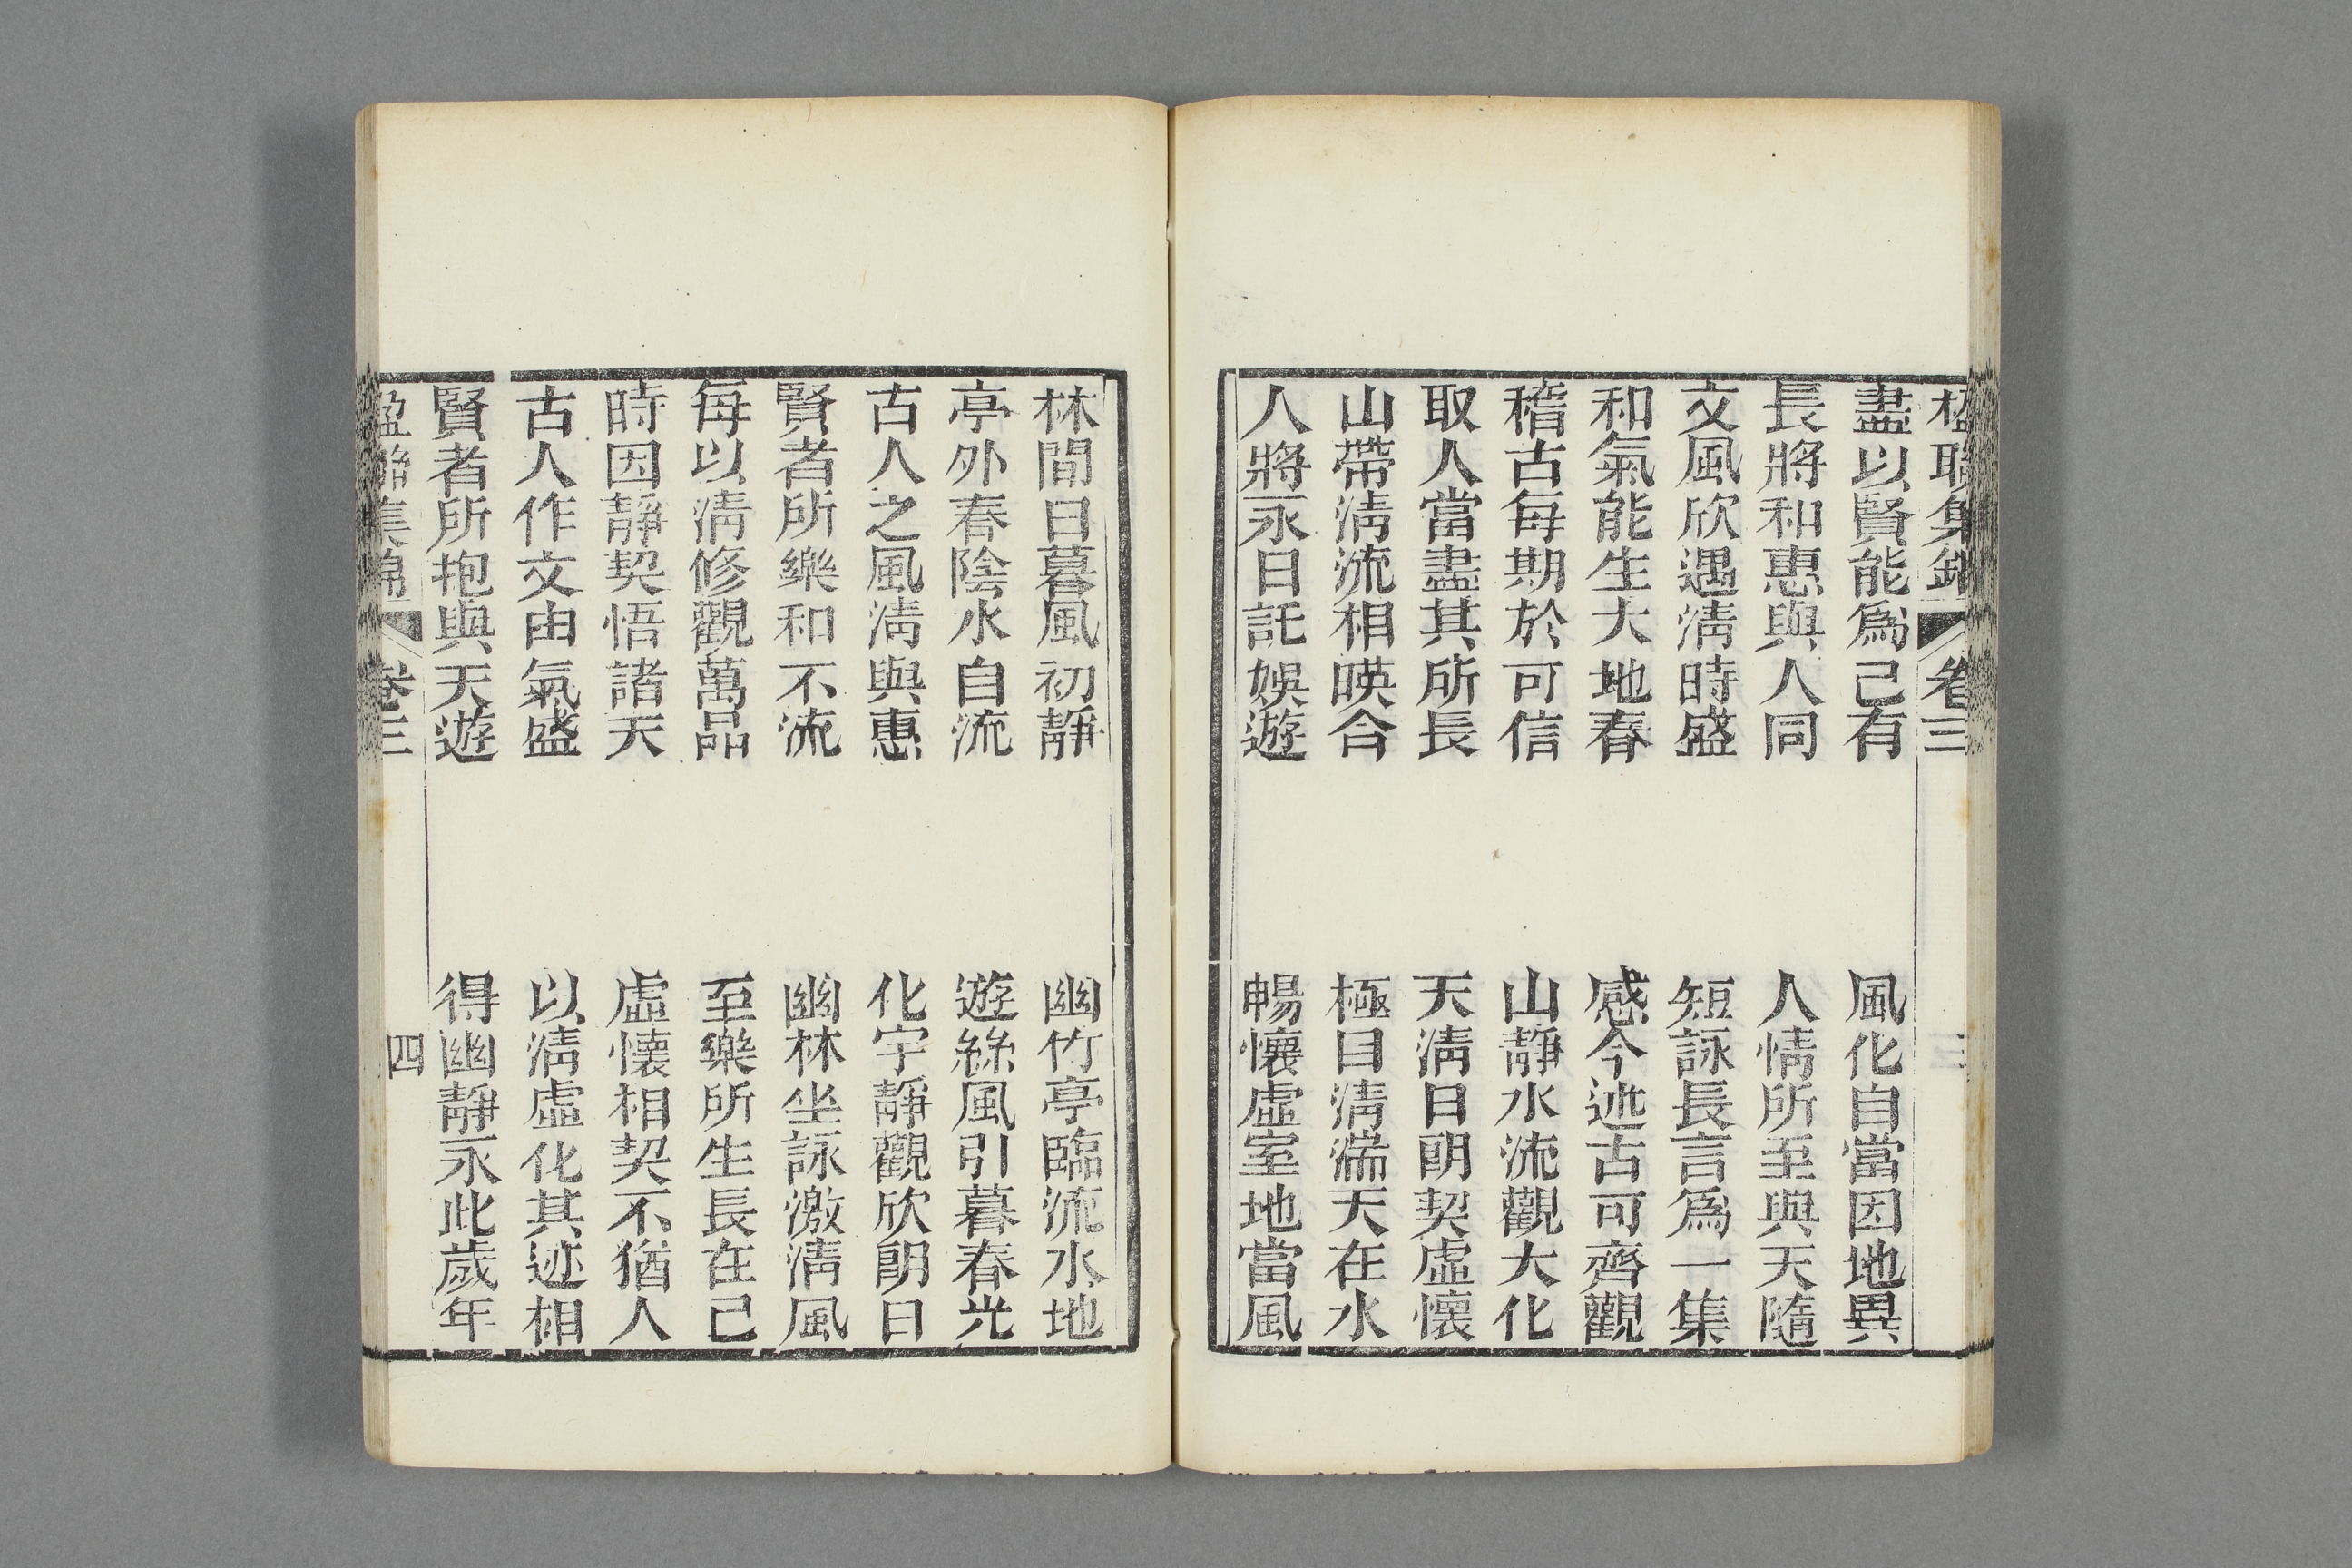 楹聯集錦 卷三 三
盡以賢能爲己有 風化自當因地異
長將和惠與人同 人情所至與天隨
文風欣遇淸時盛 短詠長言爲一集
和氣能生大地春 感今述古可齊觀
稽古每期於可信 山靜水流觀大化
取人當盡其所長 天淸日朗契虛懷
山帶淸流相暎合 極目淸湍天在水
人將永日託娛遊 暢懷虛室地當風
林間日暮風初靜 幽竹亭臨流水地
亭外春陰水自流 遊絲風引暮春光
古人之風淸與惠 化宇靜觀欣朗日
賢者所樂和不流 幽林坐詠激淸風
每以淸修觀萬品 至樂所生長在己
時因靜契悟諸天 虛懷相契不猶人
古人作文由氣盛 以淸虛化其迹相
賢者所抱與天遊 得幽靜永此歲年
楹聯集錦 卷三 四